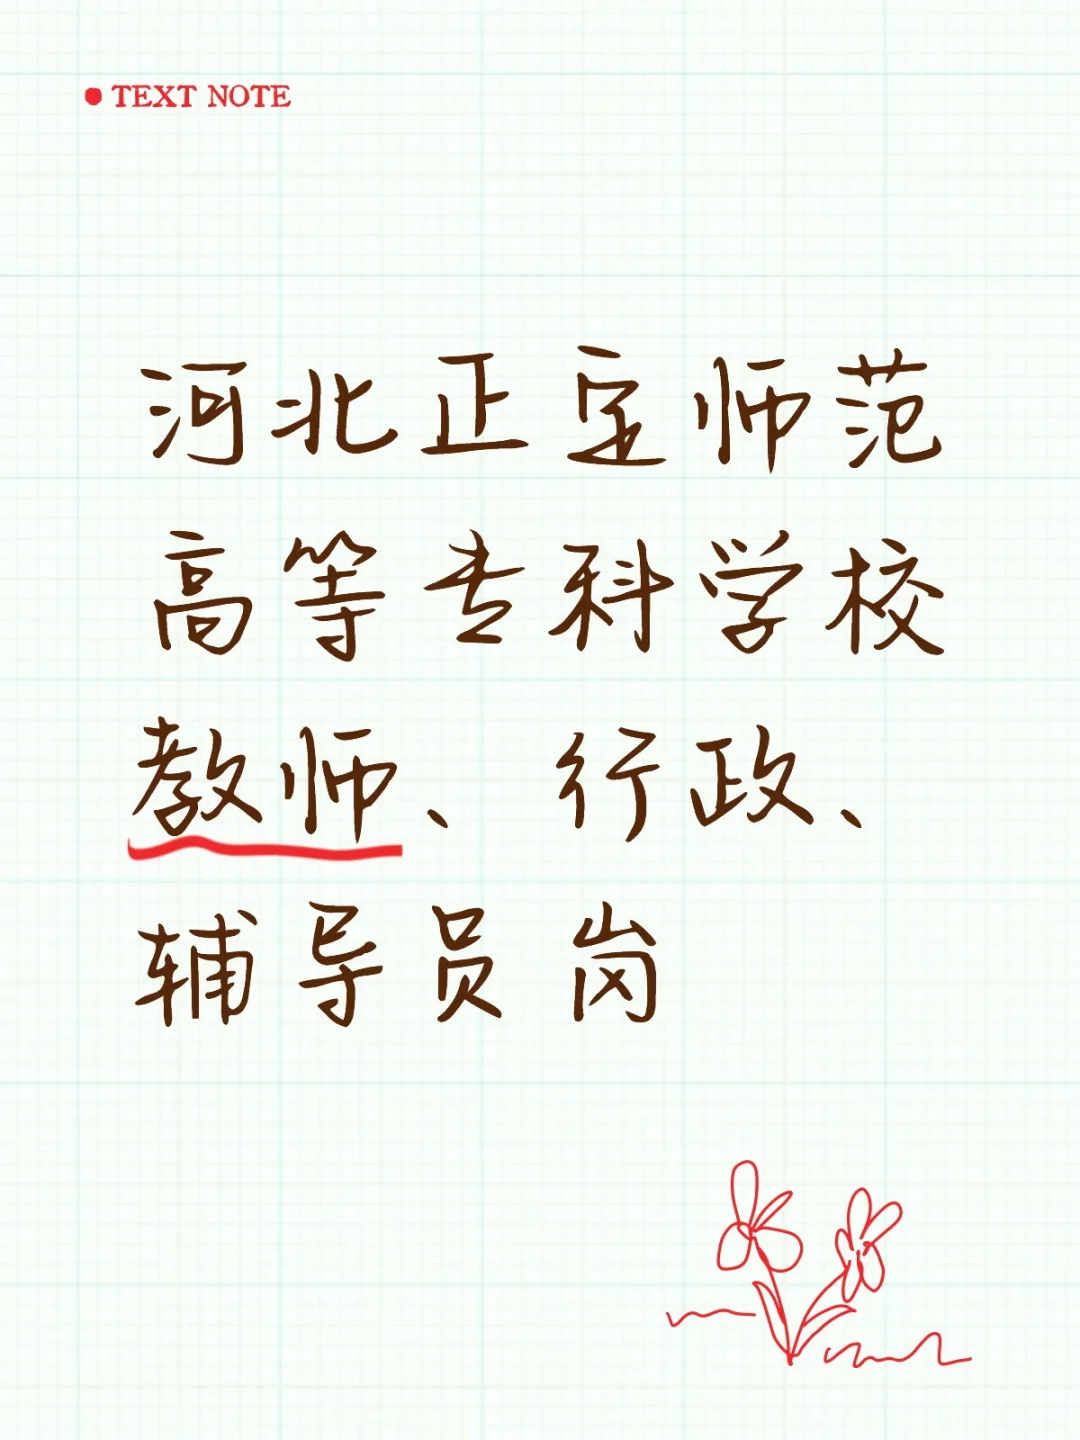 TEXT NOTE
河北正定师范
高等专科学校
教师、行政、
辅导员岗